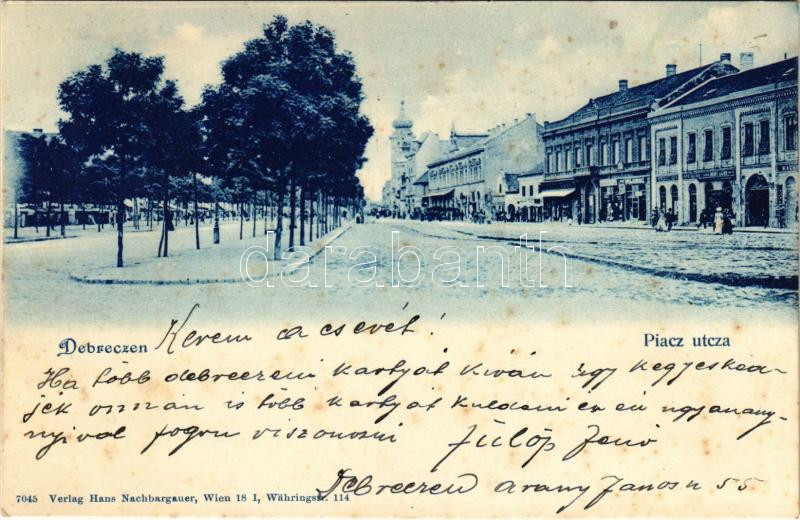 darabanth
Debreczen
Kerem a cserét!
Piacz utcza
Ha több debreczeni kartyát kiván úgy kegyeskea-
jék onnan is több kartyát küldeni és én ugyanany-
nyival fogom viszonozni Fülöp Jenő
Debreczen Arany János u 55
7045 Verlag Hans Nachbargauer, Wien 18 I, Währingstr. 114